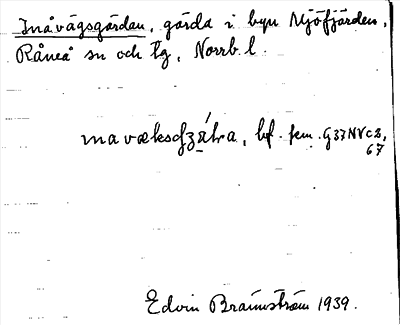 Inåvägsgärdan, gärda i byn Mjöfjärden,
Råneå sn och tg, Norrb. l.
bf. fem. G37NVc8,
67
Edvin Brännström 1939.